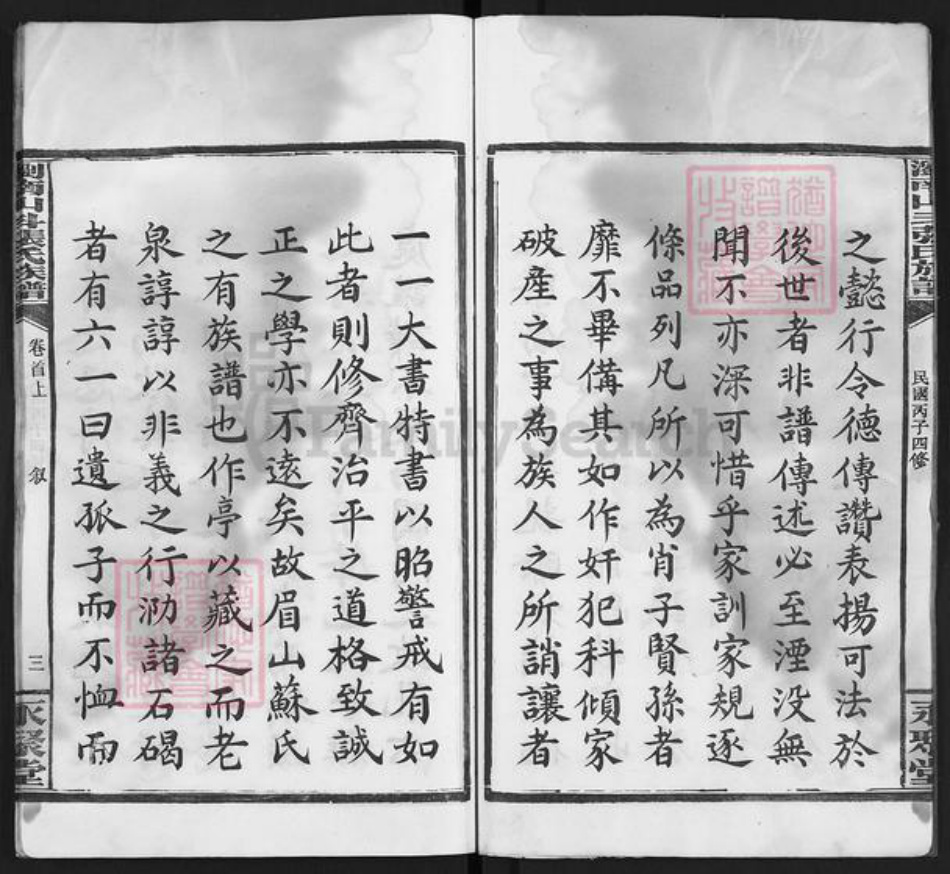 之懿行令德傳讚表揚可法於
後世者非譜傳述必至湮没無
聞不亦深可惜乎家訓家規逐
條品列凡所以為肖子賢孫者
靡不畢備其如作奸犯科傾家
破產之事為族人之所誚讓者
一一大書特書以昭警戒有如
此者則修齊治平之道格致誠
正之學亦不遠矣故眉山蘇氏
之有族譜也作亭以藏之而老
泉諄諄以非義之行泐諸石碣
者有六一曰遺孤子而不恤而
民國丙子四修
永聚堂
張氏族譜
卷首上
叙
三
永聚堂
FamilySearch